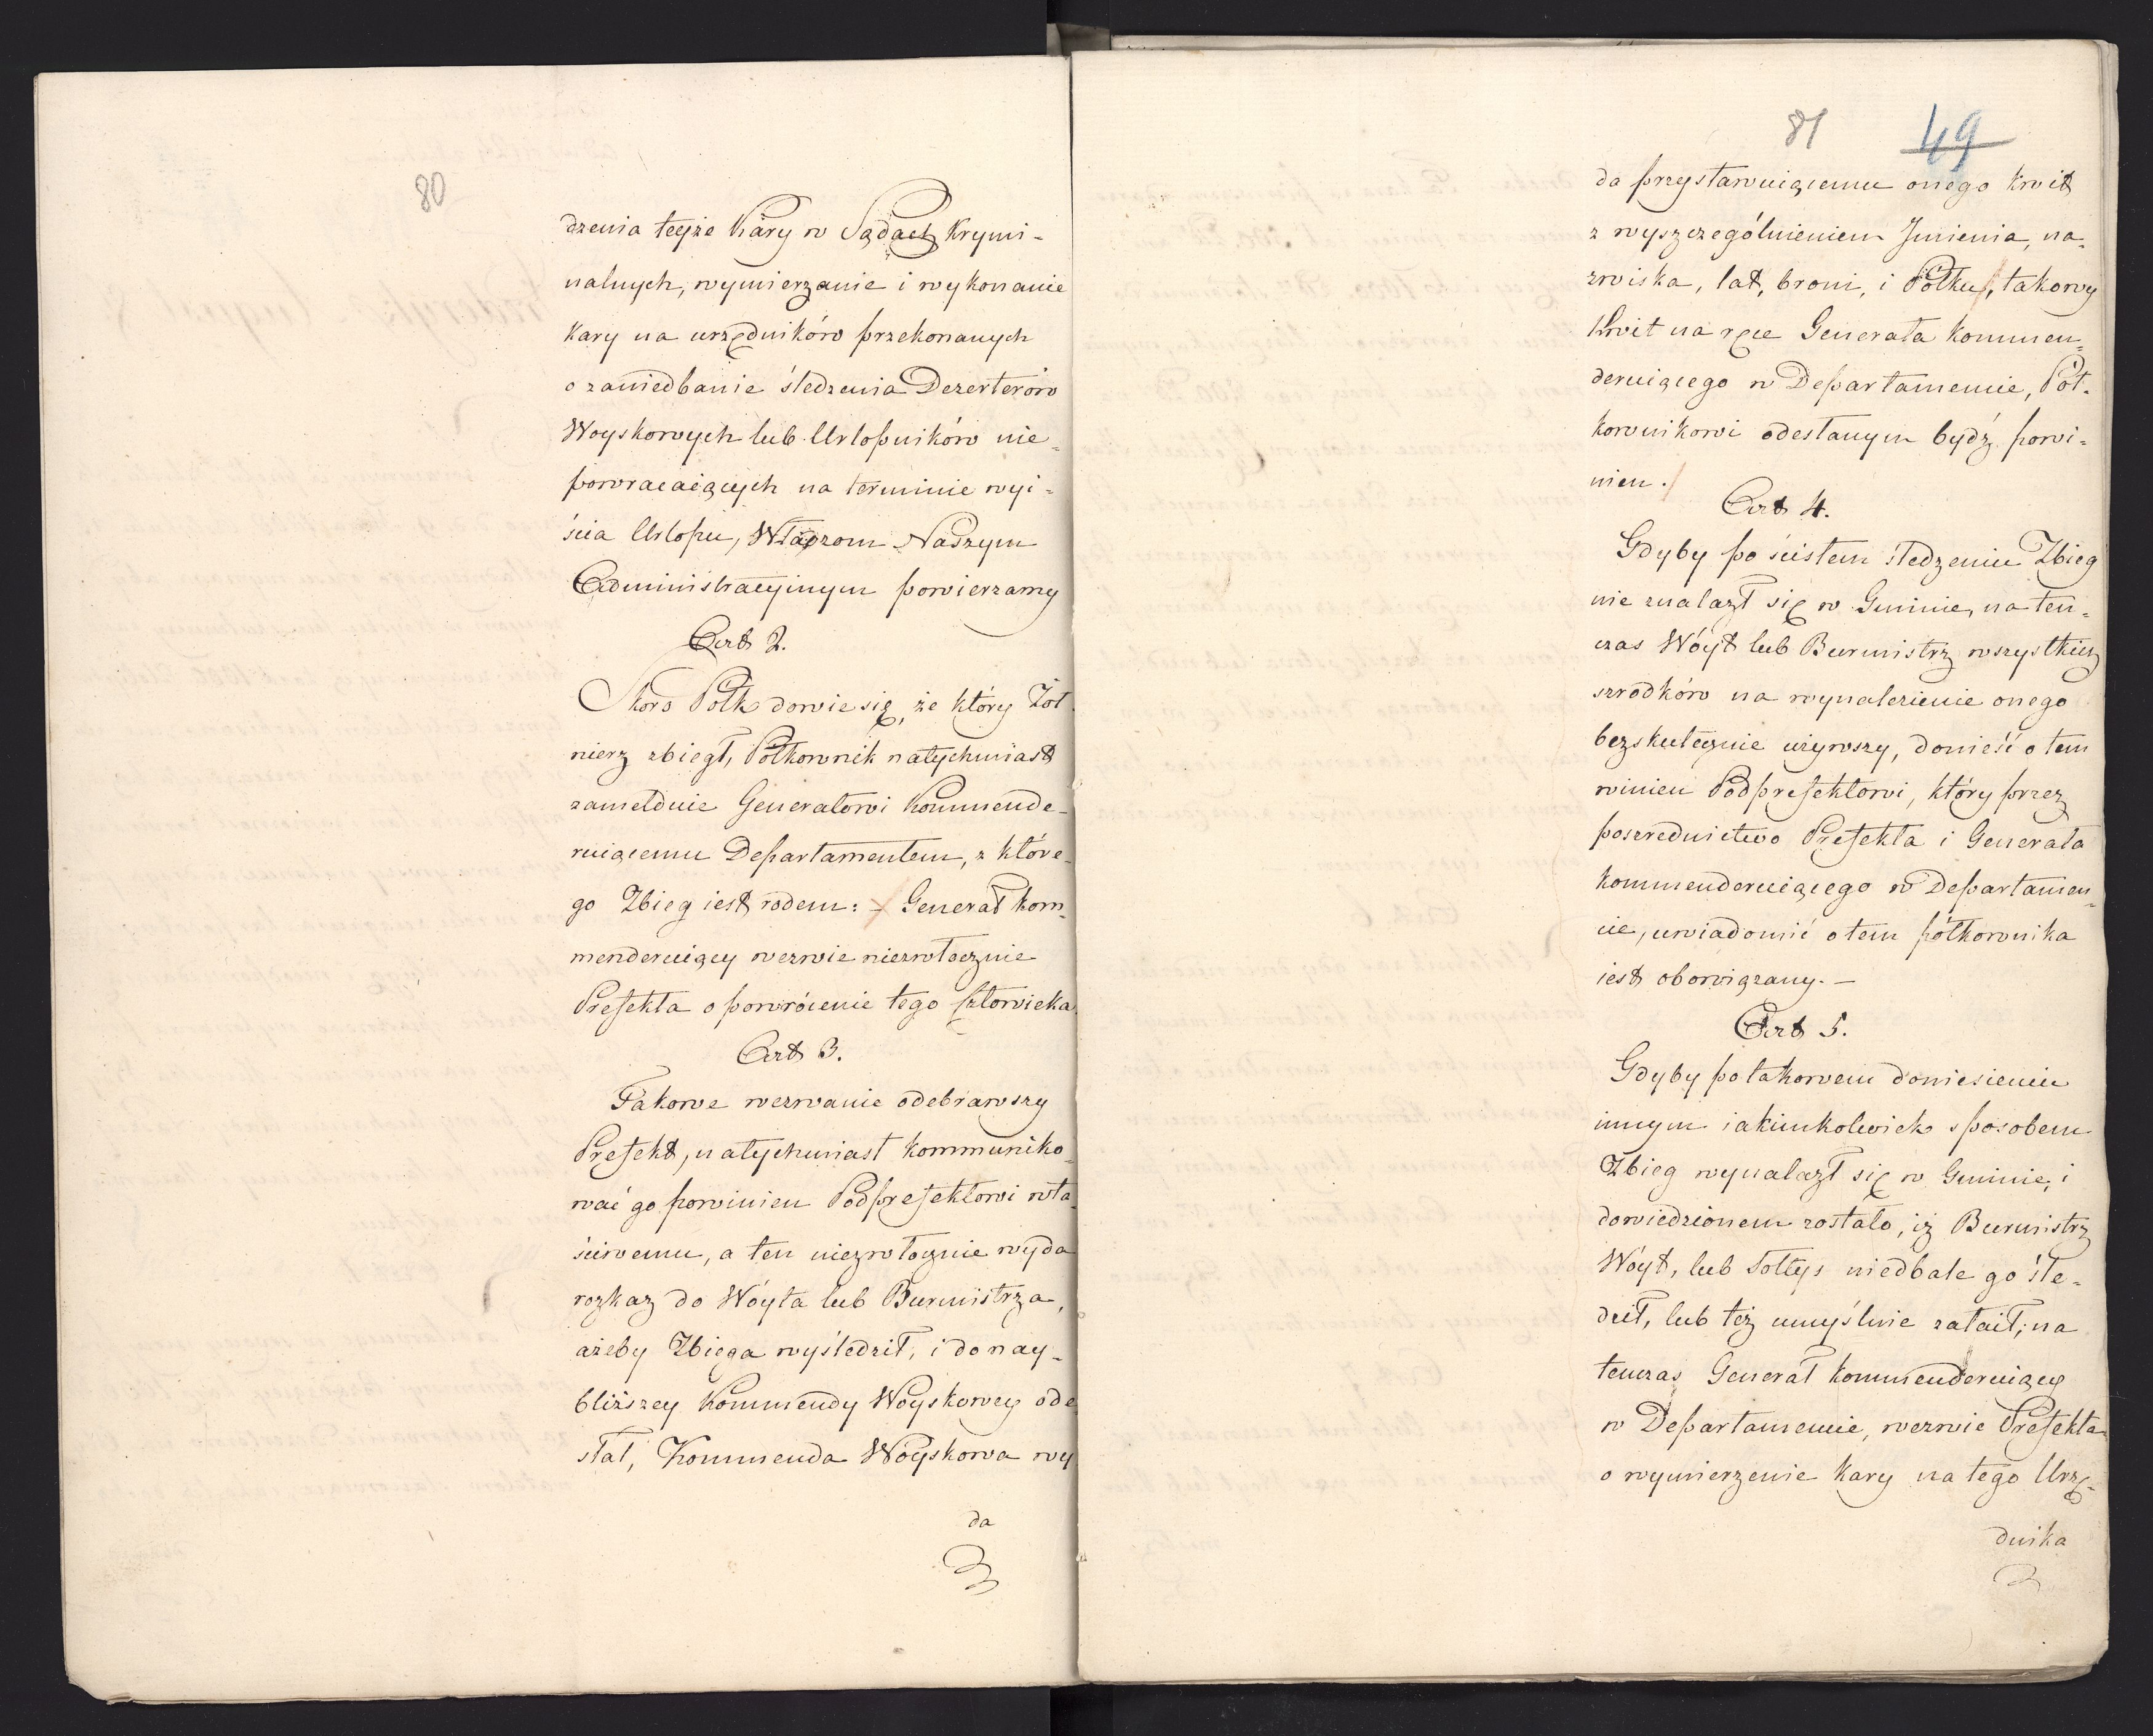 80
dzenia teyże Kary w Sądach Krymi-
nalnych, wymierzanie i wykonanie
Kary na urzędników przekonanych
o zaniedbanie śledzenia Dezerterów
Woyskowych lub Urlopników nie=
powracaiących na terminie wyi=
ścia Urlopu, Władzom Naszym
Administracyinym powierzamy
Art 2.
Skoro Półk dowie się, że który Żoł
nierz zbiegł, Półkownik natychmiast
zamelduie Generałowi Kommende-
ruiącemu Departamentem, z które-
go Zbieg iest rodem: – Generał kom=
menderuiący wezwie niezwłocznie
Prefekta o powrócenie tego człowieka.
Art 3.
Takowe wezwanie odebrawszy
Prefekt, natychmiast kommuniko=
wać go powinien Podprefektowi wła=
ściwemu, a ten niezwłocznie wyda
rozkaz do Wóyta lub Burmistrza,
ażeby Zbiega wyśledził, i do nay-
bliższey Kommendy Woyskowey ode
słał, Kommenda Woyskowa wy
da
81 49
da przystawuiącemu onego kwit
z wyszczególnieniem Jmienia, na=
zwiska, lat, broni, i Półku, takowy
Kwit na ręce Generała kommen=
deruiącego w Departamencie, Pół-
kownikowi odesłanym bydź powi=
nien.
Art 4.
Gdyby po ścisłem śledzeniu Zbieg
nie znalazł się w Gminie, na ten=
czas Wóyt lub Burmistrz wszystkich
szrodków na wynalezienie onego
bezskutecznie używszy, donieść o tem
winien Podprefektowi, który przez
poszrednictwo Prefekta i Generała
kommenderuiącego w Departamen=
cie, uwiadomić o tem półkownika
iest obowiązany. –
Art 5.
Gdyby po takowem doniesieniu
innym iakimkolwiek sposobem
Zbieg wynalazł się w Gminie, i
dowiedzionem zostało, iż Burmistrz
Wóyt, lub Sołtys niedbale go śle-
dził, lub też umyślnie zataił; na
tenczas Generał kommenderuiący
w Departamencie, wezwie Prefekta
o wymierzenie kary na tego Urzę=
dnika